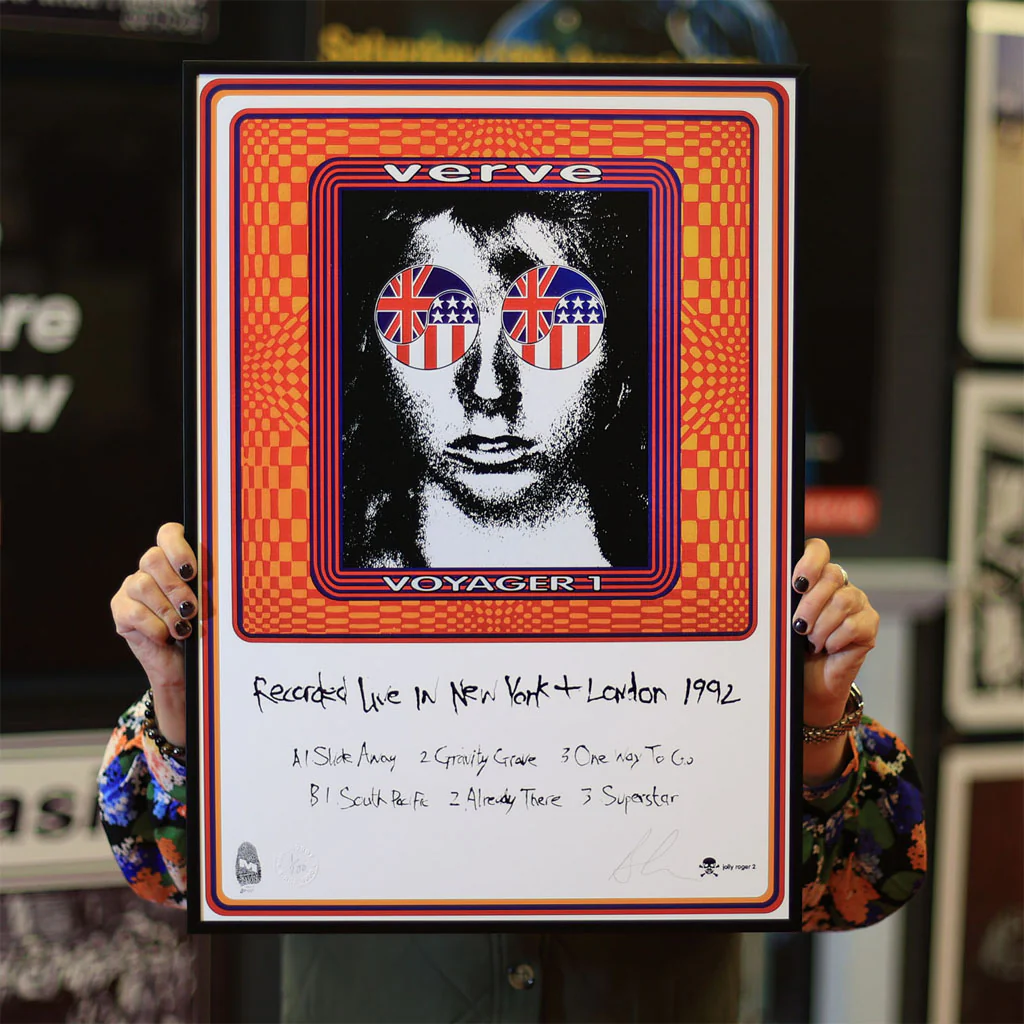 verve
VOYAGER 1
Recorded Live IN New York + London 1992
A1 Slide Away 2 Gravity Grave 3 One Way To Go
B1. South Pacific 2 Already There 3 Superstar
jolly roger 2
re
w
as